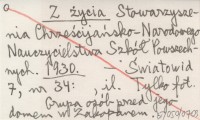 Z życia Stowarzysze-
nia Chrześcijańsko-Narodowego
Nauczycielstwa Szkół Powszech-
nych. 1930. Światowid
7, nr 34: , il. Tylko fot.
Grupa osób przed jego
domem w Zakopanem.